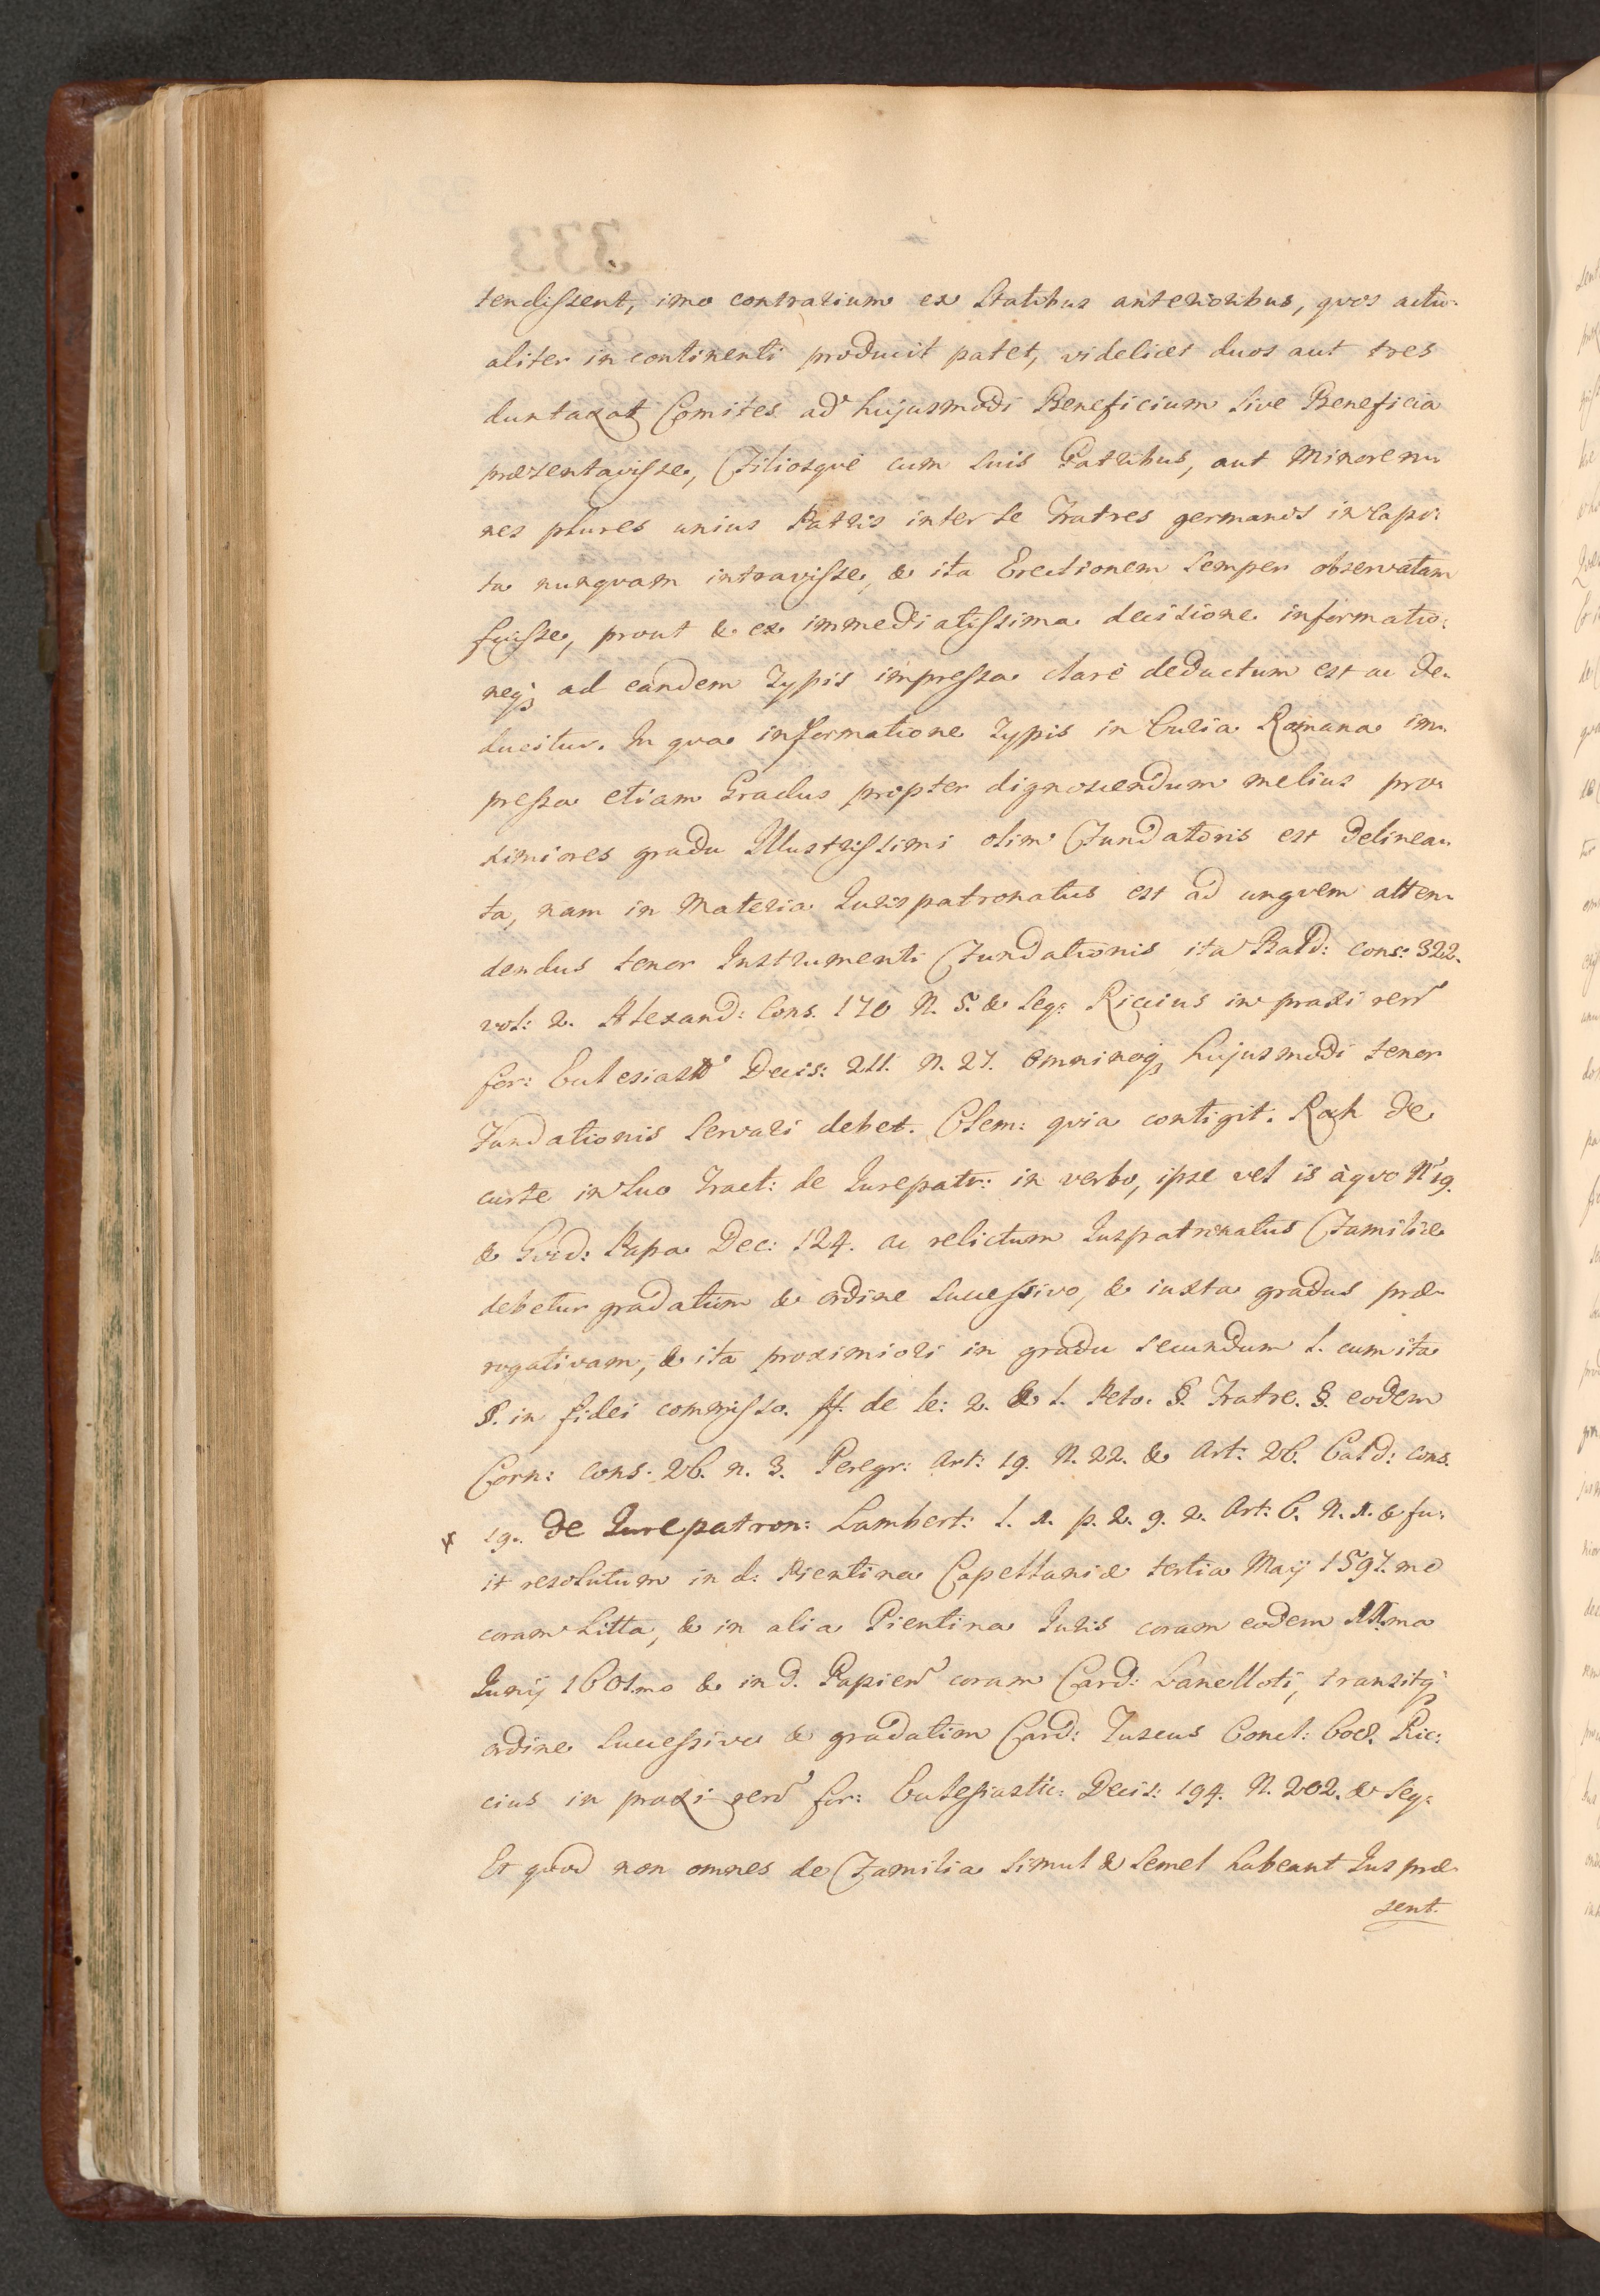 tendissent, imo contrarium ex Statibus anterioribus, qvos actu-
aliter in continenti producit patet, videlicet duos aut tres
duntaxat Comites ad hujusmodi Beneficium sive Beneficia
præsentavisse, Filiosqve cum suis Patribus, aut Minoren-
nes plures unius Patris inter se Fratres germanos in capi-
ta nunqvam intravisse, & ita Erectionem semper observatam
fuisse, prout & ex immediatissima decisione informatio-
neq; ad eandem Typis impressa clarè deductum est ac de-
ducitur. In qva informatione Typis in Curia Romana im-
pressa etiam Gradus propter dignoscendum melius pro-
ximiores gradu Illustrissimi olim Fundatoris est delinea-
ta, nam in Materia Jurispatronatus est ad ungvem atten-
dendus tenor Instrumenti Fundationis ita Bald: cons: 322.
vol: 2. Alexand: Cons. 170 N. 5. & seq: Riccius in praxi rer
for: Ecclesiast Decis: 211. N. 27. omninoq; hujusmodi tenor
Fundationis servari debet. Clem: qvia contigit. Roch de
curte in suo Tract: de Jurepatr: in verbo, ipse vel is à qvo N 19.
& Gvid: Papa Dec: 124. ac relictum Juspatronatus Familiæ
debetur gradatim & ordine successivo, & iuxta gradus præ-
rogativam, & ita proximiori in gradu secundum l. cum ita
§. in fidei commisso. ff. de le: 2. & l. Peto. §. Fratre. §. eodem
Corn: cons. 26. n. 3. Peregr: Art: 19. N. 22. & Art: 26. Cald: cons.
x 19. de Jurepatron: Lambert: l. 1. p. 2. q. 2. Art: 6. N. 1. & fu-
it resolutum in d: Pientina Capellaniæ tertia Maij 1597.mo
coram Litta, & in alia Pientina Juris coram eodem 11.ma
Junij 1601.mo & in d. Papien coram Card: Lancelloti, transitq;
ordine successivo & gradatim Card: Tuscus Concl: 608. Ric-
cius in praxi rer for: Ecclesiastic: Decis: 194. N. 202. & seq:
Et qvod non omnes de Familia simul & semel habeant Jus præ-
sent.